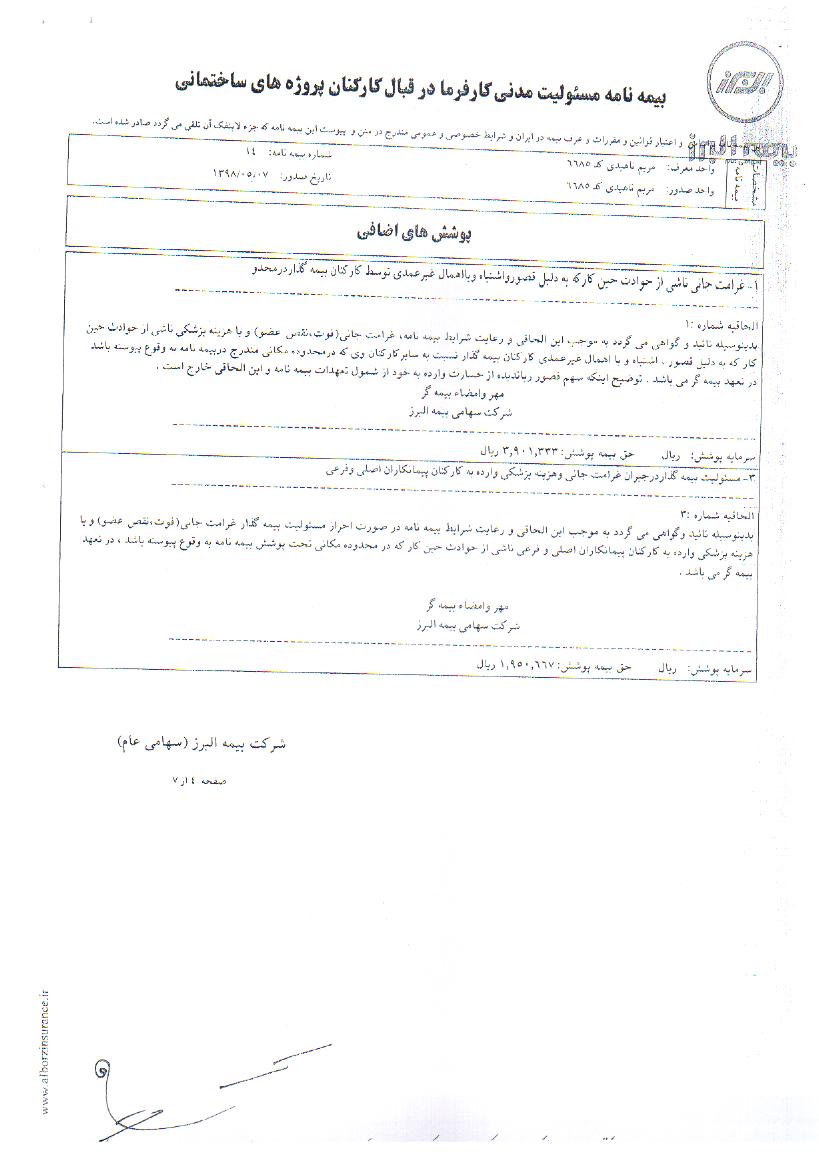 بیمه نامه مسئولیت مدنی کارفرما در قبال کارکنان پروژه های ساختمانی
بیمه البرز
و اعتبار قوانین و مقررات و عرف بیمه در ایران و شرایط خصوصی و عمومی مندرج در متن و پیوست این بیمه نامه که جزء لاینفک آن تلقی می گردد صادر شده است.
مشخصات بیمه نامه
واحد معرف: مریم ناهیدی کد ٦٦٨٥ شماره بیمه نامه: ١٤
واحد صدور: مریم ناهیدی کد ٦٦٨٥ تاریخ صدور: ١٣٩٨/٠٥/٠٧
پوشش های اضافی
١- غرامت جانی ناشی از حوادث حین کارکه به دلیل قصورواشتباه ویااهمال غیرعمدی توسط کارکنان بیمه گذاردرمحدو
الحاقیه شماره :١
بدینوسیله تائید و گواهی می گردد به موجب این الحاقی و رعایت شرایط بیمه نامه، غرامت جانی(فوت،نقص عضو) و یا هزینه پزشکی ناشی از حوادث حین
کار که به دلیل قصور ، اشتباه و یا اهمال غیرعمدی کارکنان بیمه گذار نسبت به سایرکارکنان وی که درمحدوده مکانی مندرج دربیمه نامه به وقوع پیوسته باشد
در تعهد بیمه گر می باشد . توضیح اینکه سهم قصور زیاندیده از خسارت وارده به خود از شمول تعهدات بیمه نامه و این الحاقی خارج است .
مهر وامضاء بیمه گر
شرکت سهامی بیمه البرز
سرمایه پوشش: ریال حق بیمه پوشش: ٣,٩٠١,٣٣٣ ریال
٣- مسئولیت بیمه گذاردرجبران غرامت جانی وهزینه پزشکی وارده به کارکنان پیمانکاران اصلی وفرعی
الحاقیه شماره :٣
بدینوسیله تائید وگواهی می گردد به موجب این الحاقی و رعایت شرایط بیمه نامه در صورت احراز مسئولیت بیمه گذار غرامت جانی(فوت،نقص عضو) و یا
هزینه پزشکی وارده به کارکنان پیمانکاران اصلی و فرعی ناشی از حوادث حین کار که در محدوده مکانی تحت پوشش بیمه نامه به وقوع پیوسته باشد ، در تعهد
بیمه گر می باشد .
مهر وامضاء بیمه گر
شرکت سهامی بیمه البرز
سرمایه پوشش: ریال حق بیمه پوشش: ١,٩٥٠,٦٦٧ ریال
شرکت بیمه البرز (سهامی عام)
صفحه ٤ از ٧
www.alborzinsurance.ir